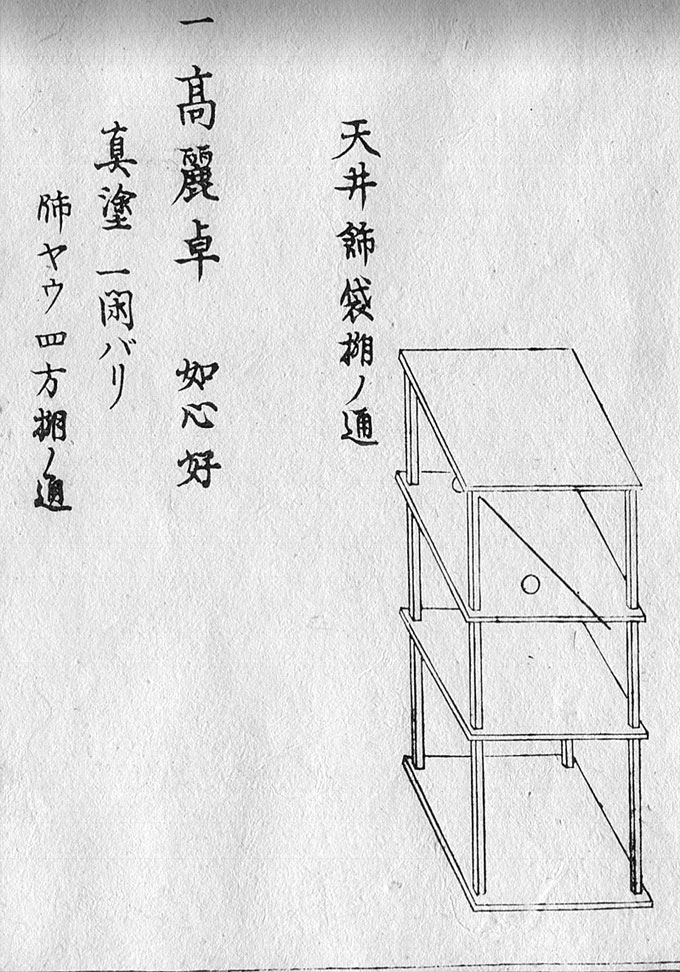 天井飾袋棚ノ通
一高麗卓 如心好
真塗一閑バリ
飾ヤウ四方棚ノ通